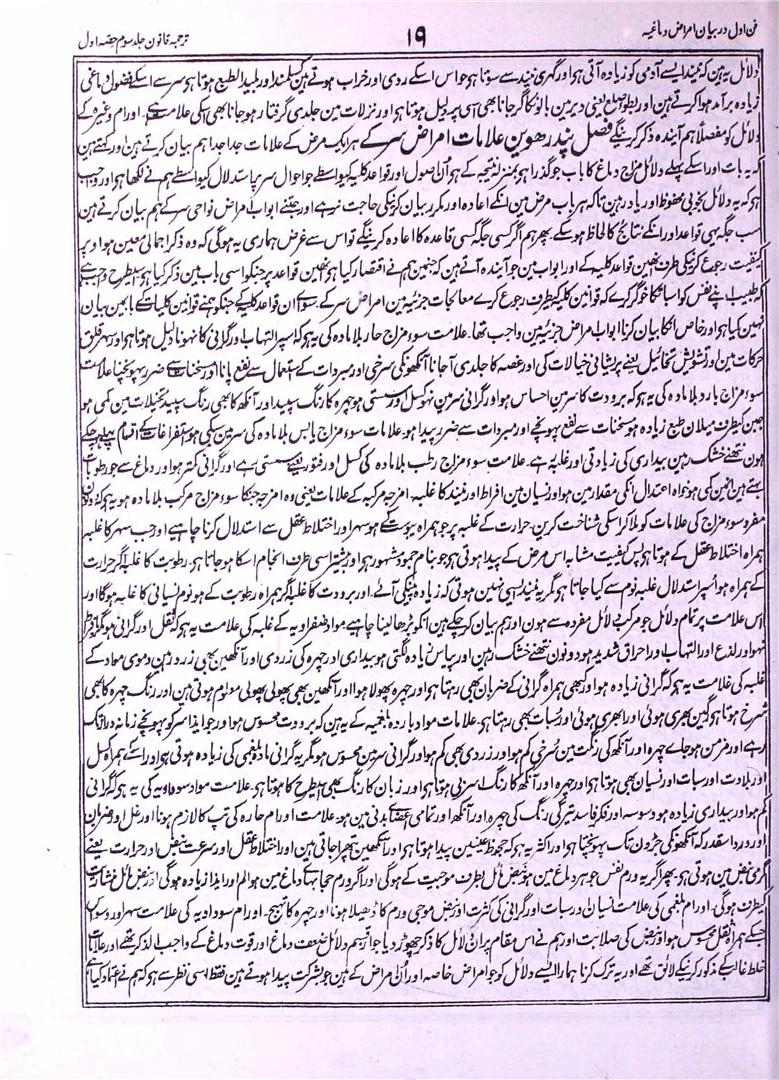 فن اول در بیان امراض دماغیہ ۱۹ ترجمہ قانون جلد سوم حصہ اول
دلائل یہ ہین کہ نیند ایسے آدمی کو زیادہ آتی ہو اور گہری نیند سے سوتا ہو حواس اسکے ردی اور خراب ہوتے ہین کسلمند اور بلید الطبع ہوتا ہو سر سے اسکے فضول دماغی
زیادہ برآمد ہوا کرتے ہین اور بطور صلع یعنی دیر مین بالونکا گر جانا بھی اسی پر دلیل ہوتا ہو اور نزلات مین جلدی گرفتار ہو جانا بھی اسکی علامت ہے۔ اورام وغیرہ کے
دلائل کو مفصلاً ہم آیندہ ذکر کرینگے فصل پندرھوین علامات امراض سر کے ہر ایک مرض کے علامات جدا جدا ہم بیان کرتے ہین اور کہتے ہین
کہ یہ بات اور اسکے پہلے دلائل مزاج دماغ کا باب جو گذرا ہو بمنزلہ نتیجہ کے ہو اُن اصول اور قواعد کلیہ کیواسطے جو احوال سر پر استدلال کیواسطے ہم نے لکھا ہو اور واجب
ہو کہ یہ دلائل بخوبی محفوظ اور یاد رہین تاکہ ہر باب مرض مین انکے اعادہ اور مکرر بیان کرنیکی حاجت نرہے اور جتنے ابواب امراض نواحی سر کے ہم بیان کرتے ہین
سب جگہ یہی قواعد اور انکے نتائج کا لحاظ ہو سکے۔ پھر ہم اگر کسی جگہ کسی قاعدہ کا اعادہ کرینگے تو اس سے غرض ہماری یہ ہوگی کہ وہ ذکر اجمالی معین ہو اوپر
کیفیت رجوع کرنیکی طرف انھین قواعد کلیہ کے اور ابواب مین جو آیندہ آتے ہین کہ جنمین ہم نے اقتصار کیا ہو انھین قواعد پر جنکو اسی باب مین ذکر کیا ہو اسیطرح واجب ہے
کہ طبیب اپنے نفس کو اس بات کا خوگر کرے کہ قوانین کلیہ کیطرف رجوع کرے معالجات جزئیہ مین امراض سر کے۔ سوا ان قواعد کلیہ کے جنکو ہمنے قوانین کلیات کے باب مین بیان
نہین کیا ہو اور خاص انکا بیان کرنا ابواب امراض جزئیہ مین واجب تھا۔ علامت سوء مزاج حار بلا مادہ کی یہ ہو کہ سر پر التہاب اور گرانی کا نہونا دلیل ہوتا ہو اور سہر و قلق
حرکات مین اور تشویش تخائیل یعنے پریشانی خیالات کی اور غصہ کا جلدی آجانا آنکھونکی سرخی اور مبردات کے استعمال سے نفع پانا اور سخنات سے ضرر پہونچنا علامت
سوء مزاج بارد بلا مادہ کی یہ ہو کہ برودت کا سر مین احساس ہو اور گرانی سر مین نہو کسل اور سستی ہو چہرہ کا رنگ سپید اور آنکھ کا بھی رنگ سپید تخیلات مین کمی ہو
جبن کیطرف میلان طبع زیادہ ہو مسخنات سے نفع پہونچے اور مبردات سے ضرر پیدا ہو۔ علامات سوء مزاج یابس بلا مادہ کی سر مین سبکی ہو استفراغات کے اقسام پہلے ہو چکے
ہون نتھنے خشک رہین بیداری کی زیادتی اور غلبہ ہے۔ علامت سوء مزاج رطب بلا مادہ کی کسل اور فتور یعنے سستی ہے اور گرانی کمتر ہو اور دماغ سے جو رطوبات
بہتے ہین انمین کمی ہو خواہ اعتدال انکی مقدار مین ہو اور نسیان مین افراط اور نیند کا غلبہ۔ امزجہ مرکبہ کے علامات یعنی وہ امزجہ جنکا سوء مزاج مرکب بلا مادہ ہو یہ ہو کہ دونون
مفرد سوء مزاج کی علامات کو ملا کر اسکی شناخت کرین۔ حرارت کے غلبہ پر جو ہمراہ یبوست کے ہو سہر اور اختلاط عقل سے استدلال کرنا چاہیے اور جب سہر کا غلبہ
ہمراہ اختلاط عقل کے ہوتا ہو پس کیفیت مشابہ اس مرض کے پیدا ہوتی ہو جو بنام جمود مشہور ہو اور بیشتر اسی طرف انجام اسکا ہو جاتا ہو۔ رطوبت کا غلبہ اگر حرارت
کے ہمراہ ہو اسپر استدلال غلبہ نوم سے کیا جاتا ہو مگر یہ نیند ایسی نہین ہوتی کہ زیادہ پنکی آئے۔ اور برودت کا غلبہ اگر ہمراہ رطوبت کے ہو نوم نسیانی کا غلبہ ہوگا اور
اس علامت پر تمام دلائل جو مرکب دلائل مفردہ سے ہون اور ہم بیان کر چکے ہین انکو بڑھا لینا چاہیے مواد صفراویہ کے غلبہ کی علامت یہ ہو کہ ثقل اور گرانی ہو مگر بافراط
نہو اور لذع اور التہاب و احراق شدید ہو دونون نتھنے خشک رہین اور پیاس زیادہ لگتی ہو بیداری اور چہرہ کی زردی اور آنکھین بھی زرد ہین دموی مواد کے
غلبہ کی علامت یہ ہو کہ گرانی زیادہ ہو اور کبھی ہمراہ گرانی کے ضربان بھی رہتا ہو اور چہرہ پھولا ہوا اور آنکھین بھی پھولی پھولی معلوم ہوتی ہین اور رنگ چہرہ کا بھی
سرخ ہوتا ہو رگین بھری ہوئی اور ابھری ہوئی اور سبات بھی رہتا ہو۔ علامات مواد باردہ بلغمیہ کے یہ ہین کہ برودت محسوس ہو اور جو ایذا سر کو پہونچے زمانہ دراز تک
رہے اور مزمن ہو جاے چہرہ اور آنکھ کی رنگت مین سرخی کم ہو اور زردی بھی کم ہو اور گرانی سر مین محسوس ہو مگر یہ گرانی مادہ بلغمی کی زیادہ ہوتی ہو اور اسکے ہمراہ کسل
اور بلادت اور سبات اور نسیان بھی ہوتا ہو اور چہرہ اور آنکھ کا رنگ سربی ہوتا ہو اور زبان کا رنگ بھی اسیطرح کا ہوتا ہو۔ علامت مواد سوداویہ کی یہ ہو کہ گرانی
کم ہو اور بیداری زیادہ ہو وسوسہ اور فکر فاسد تیرگی رنگ کی چہرہ اور آنکھ اور تمامی اعضاے بدنی مین ہو۔ علامت اورام حارہ کی تپ کا لازم ہونا اور ثقل اور ضربان
اور درد اسقدر کہ آنکھونکی جڑون تک پہونچتا ہو اور اکثر یہ ہو کہ جحوظ عینین پیدا ہوتا ہو اور آنکھین پتھرا جاتی ہین اور اختلاط عقل اور سرعت نبض اور حرارت یعنے
گرمی نبض مین ہوتی ہو۔ پھر اگر یہ ورم نفس جوہر دماغ مین ہو نبض مائل بطرف موجیت کے ہوگی اور اگر ورم حجابہاے دماغ مین ہو الم اور ایذا زیادہ ہوگی اور نبض مائل منشاریت
کیطرف ہوگی۔ اورام بلغمی کی علامت نسیان اور سبات اور گرانی کی کثرت اور نبض موجی ورم کا ڈھیلا ہونا اور چہرہ کا تہبج۔ اورام سوداویہ کی علامت سہر اور وسواس
جسکے ہمراہ ثقل محسوس ہو اور نبض کی صلابت اور ہم نے اس مقام پر ان دلائل کا ذکر چھوڑ دیا جو از قسم دلائل ضعف دماغ اور قوت دماغ کے واجب الذکر تھے اور علامات
خلط غالب کے مذکور کرنیکے لائق تھے اور یہ ترک کرنا ہمارا ایسے دلائل کو جو امراض خاصہ اور اُن امراض کے ہین جو بشرکت پیدا ہوتے ہین فقط اسی نظر سے ہو کہ ہم نے اعتماد کیا ہے